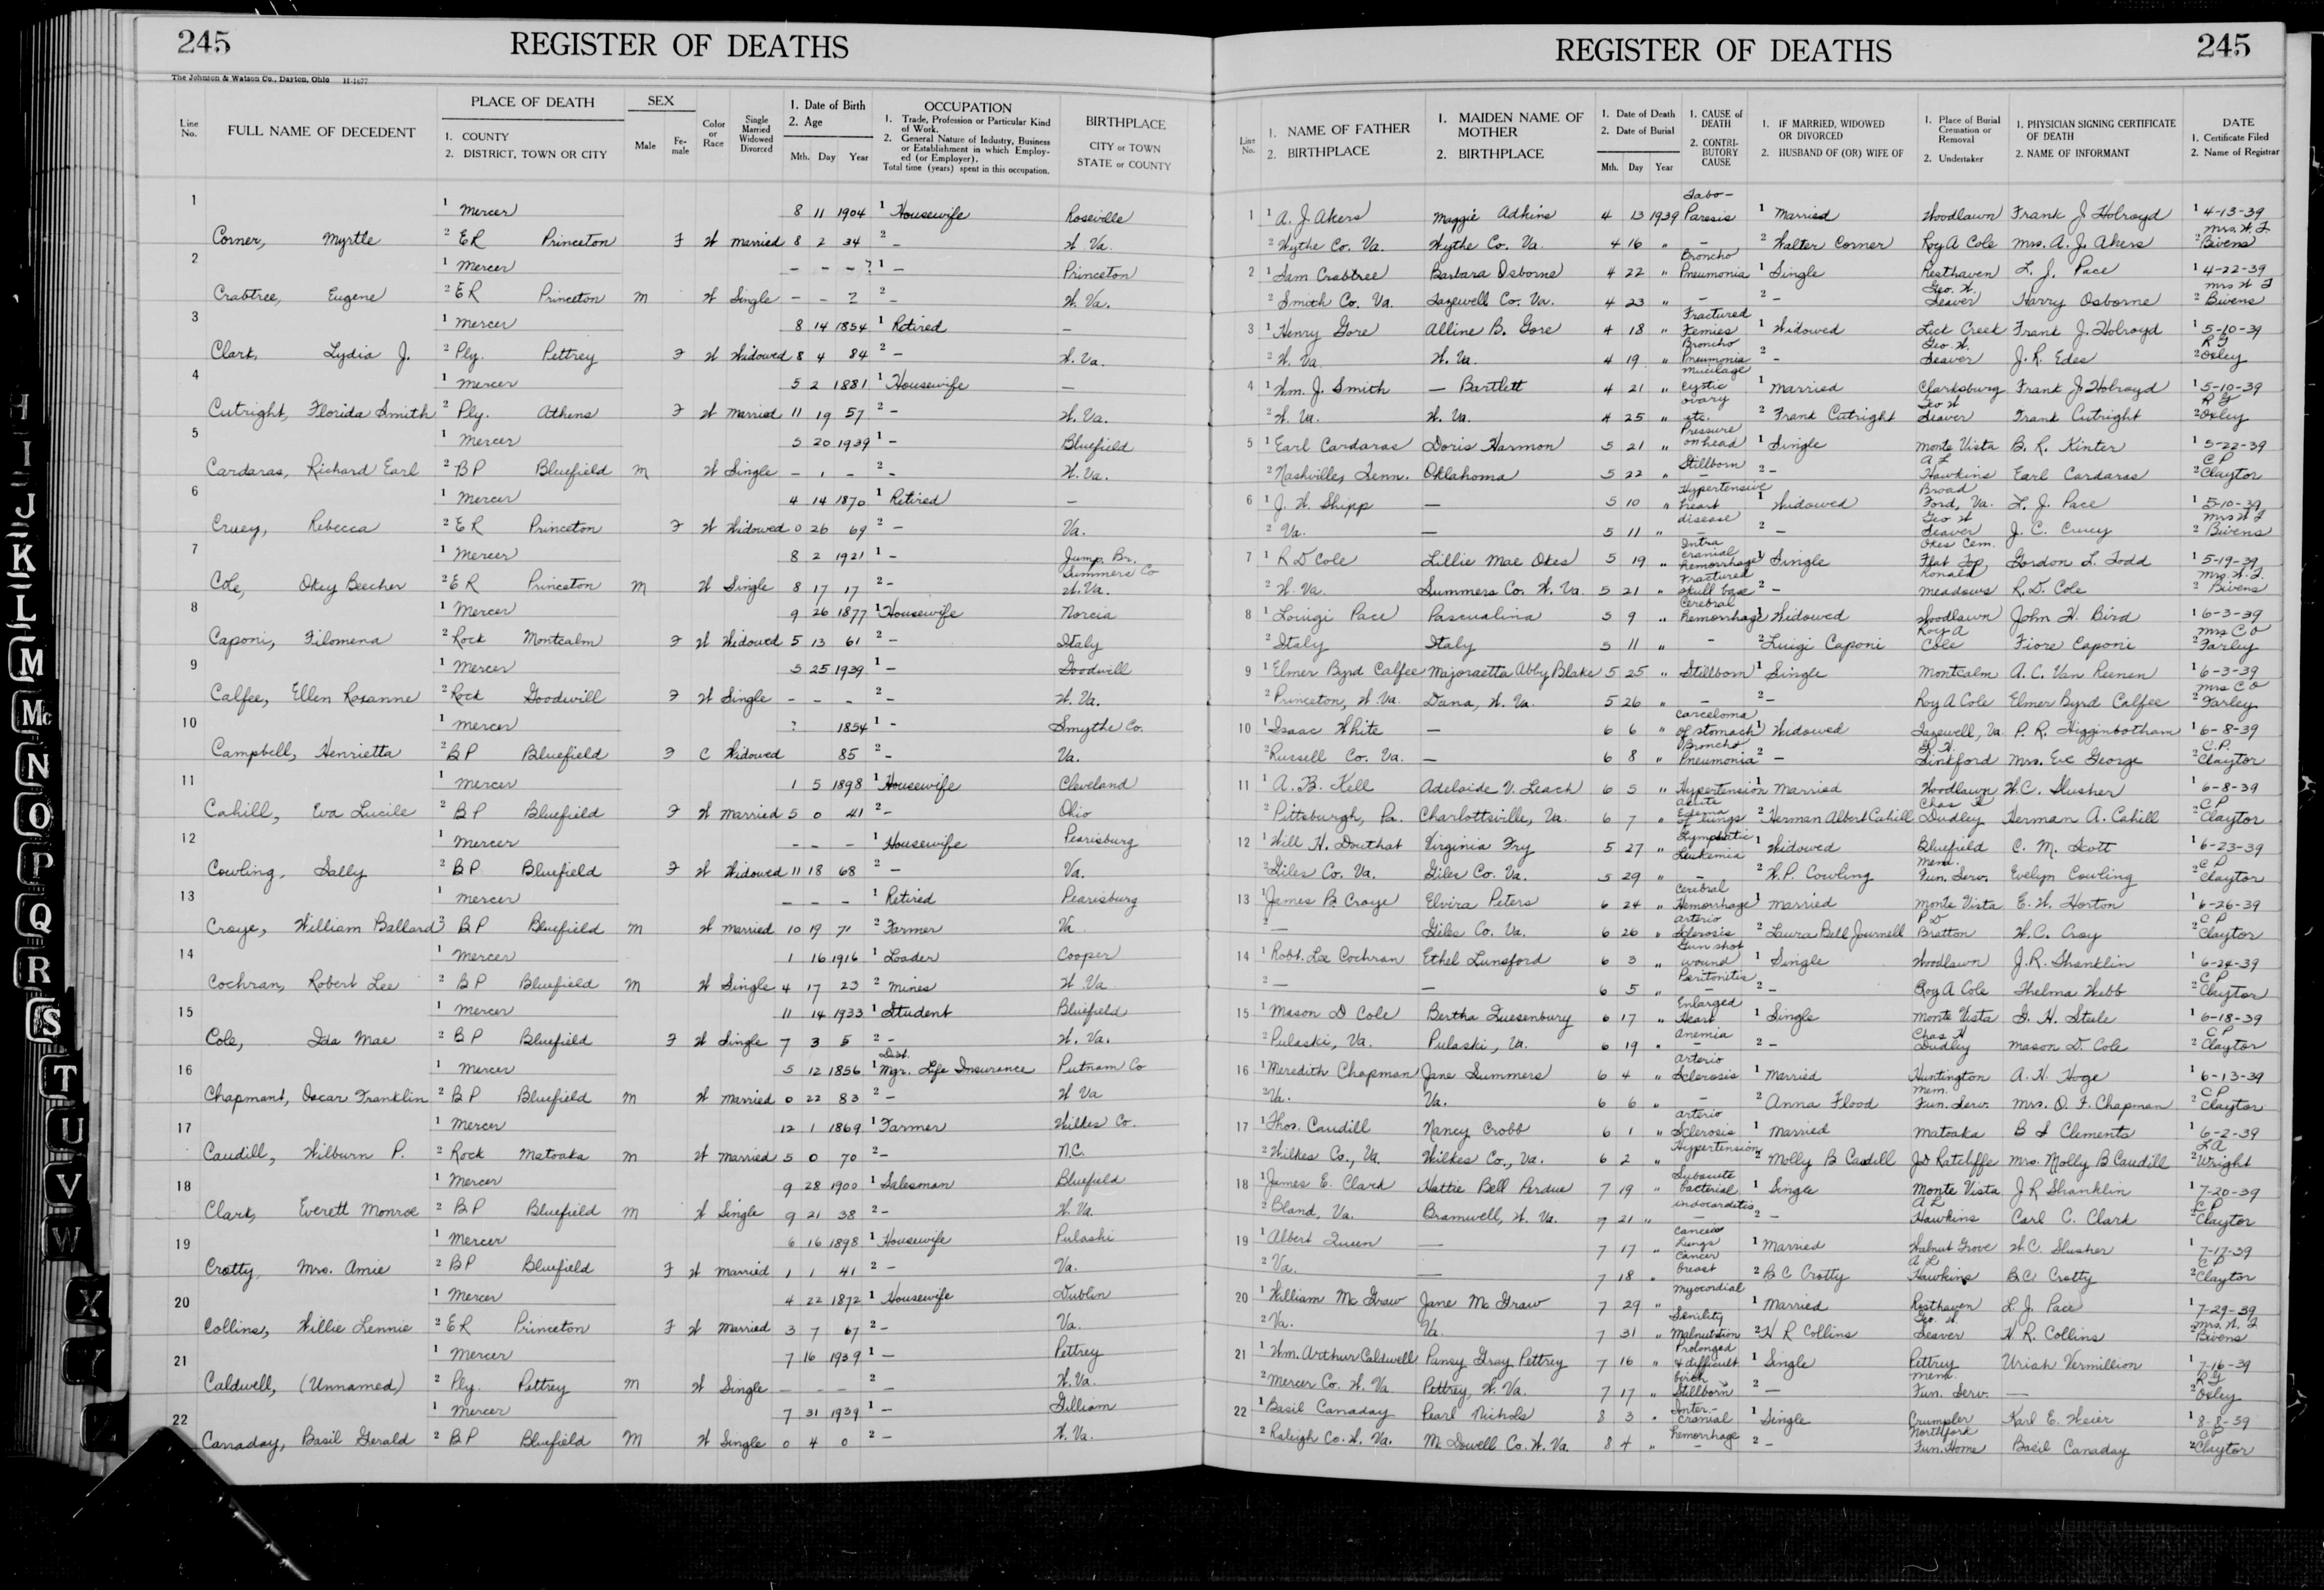 245 REGISTER OF DEATHS
The Johnson & Watson Co., Dayton, Ohio H-1677
Line No. FULL NAME OF DECEDENT PLACE OF DEATH 1. COUNTY 2. DISTRICT, TOWN OR CITY SEX Male Fe-male Color or Race Single Married Widowed Divorced 1. Date of Birth 2. Age Mth. Day Year OCCUPATION 1. Trade, Profession or Particular Kind of Work. 2. General Nature of Industry, Business or Establishment in which Employ-ed (or Employer). Total time (years) spent in this occupation. BIRTHPLACE CITY or TOWN STATE or COUNTY
1 1 Mercer 8 11 1904 1 Housewife Roseville
Corner, Myrtle 2 ER Princeton F W Married 8 2 34 2 - W. Va.
2 1 Mercer - - - ? 1 - Princeton
Crabtree, Eugene 2 ER Princeton M W Single - - 2 2 - W. Va.
3 1 Mercer 8 14 1854 1 Retired -
Clark, Lydia J. 2 Ply. Pettrey F W Widowed 8 4 84 2 - W. Va.
4 1 Mercer 5 2 1881 1 Housewife -
Cutright, Florida Smith 2 Ply. Athens F W Married 11 19 57 2 - W. Va.
5 1 Mercer 5 20 1939 1 - Bluefield
Cardaras, Richard Earl 2 BP Bluefield M W Single - 1 - 2 - W. Va.
6 1 Mercer 4 14 1870 1 Retired -
Cruey, Rebecca 2 ER Princeton F W Widowed 0 26 69 2 - Va.
7 1 Mercer 8 2 1921 1 - Jump. Br. Summers Co
Cole, Okey Beecher 2 ER Princeton M W Single 8 17 17 2 - W. Va.
8 1 Mercer 9 26 1877 1 Housewife Norcia
Caponi, Filomena 2 Rock Montcalm F W Widowed 5 13 61 2 - Italy
9 1 Mercer 5 25 1939 1 - Goodwill
Calfee, Ellen Roxanne 2 Rock Goodwill F W Single - - - 2 - W. Va.
10 1 Mercer ? 1854 1 - Smythe Co.
Campbell, Henrietta 2 BP Bluefield F C Widowed 85 2 - Va.
11 1 Mercer 1 5 1898 1 Housewife Cleveland
Cahill, Eva Lucile 2 BP Bluefield F W Married 5 0 41 2 - Ohio
12 1 Mercer - - - 1 Housewife Pearisburg
Cowling, Sally 2 BP Bluefield F W Widowed 11 18 68 2 - Va.
13 1 Mercer - - - 1 Retired Pearisburg
Croye, William Ballard 3 BP Bluefield M W Married 10 19 71 2 Farmer Va
14 1 Mercer 1 16 1916 1 Loader Cooper
Cochran, Robert Lee 2 BP Bluefield M W Single 4 17 23 2 Mines W Va
15 1 Mercer 11 14 1933 1 Student Bluefield
Cole, Ida Mae 2 BP Bluefield F W Single 7 3 5 2 - W. Va.
16 1 Mercer 5 12 1856 1 Dist. Mgr. Life Insurance Putnam Co
Chapmant, Oscar Franklin 2 BP Bluefield M W Married 0 22 83 2 - W Va
17 1 Mercer 12 1 1869 1 Farmer Wilkes Co.
Caudill, Wilburn P. 2 Rock Matoaka M W Married 5 0 70 2 - N.C.
18 1 Mercer 9 28 1900 1 Salesman Bluefield
Clark, Everett Monroe 2 BP Bluefield M W Single 9 21 38 2 - W. Va.
19 1 Mercer 6 16 1898 1 Housewife Pulaski
Crotty, Mrs. Amie 2 BP Bluefield F W Married 1 1 41 2 - Va.
20 1 Mercer 4 22 1872 1 Housewife Dublin
Collins, Willie Lennie 2 ER Princeton F W Married 3 7 67 2 - Va.
21 1 Mercer 7 16 1939 1 - Pettrey
Caldwell, (Unnamed) 2 Ply. Pettrey M W Single - - - 2 - W. Va.
22 1 Mercer 7 31 1939 1 - Gilliam
Canaday, Basil Gerald 2 BP Bluefield M W Single 0 4 0 2 - W. Va.
REGISTER OF DEATHS 245
Line No. 1. NAME OF FATHER 2. BIRTHPLACE 1. MAIDEN NAME OF MOTHER 2. BIRTHPLACE 1. Date of Death 2. Date of Burial Mth. Day Year 1. CAUSE of DEATH 2. CONTRI-BUTORY CAUSE 1. IF MARRIED, WIDOWED OR DIVORCED 2. HUSBAND OF (OR) WIFE OF 1. Place of Burial Cremation or Removal 2. Undertaker 1. PHYSICIAN SIGNING CERTIFICATE OF DEATH 2. NAME OF INFORMANT DATE 1. Certificate Filed 2. Name of Registrar
1 1 A. J. Akers Maggie Adkins 4 13 1939 Tabo-Paresis 1 Married Woodlawn Frank J Holroyd 1 4-13-39
2 Wythe Co. Va. Wythe Co. Va. 4 16 " - 2 Walter Corner Roy A Cole Mrs. A. J. Akers 2 Mrs. W. F. Bivens
2 1 Sam Crabtree Barbara Osborne 4 22 " Broncho Pneumonia 1 Single Resthaven L. J. Pace 1 4-22-39
2 Smith Co. Va. Tazewell Co. Va. 4 23 " - 2 - Geo. W. Seaver Harry Osborne 2 Mrs W F Bivens
3 1 Henry Gore Alline B. Gore 4 18 " Fractured Femies 1 Widowed Lick Creek Frank J. Holroyd 1 5-10-39
2 W. Va. W. Va. 4 19 " Broncho Pneumonia 2 - Geo. W. Seaver J. R. Edes 2 R G Oxley
4 1 Wm. J. Smith - Bartlett 4 21 " Mucilage cystic ovary 1 Married Clarksburg Frank J Holroyd 1 5-10-39
2 W. Va. W. Va. 4 25 " etc. 2 Frank Cutright Geo W Seaver Frank Cutright 2 R G Oxley
5 1 Earl Cardaras Doris Harmon 5 21 " Pressure on head 1 Single Monte Vista B. R. Kinter 1 5-22-39
2 Nashville, Tenn. Oklahoma 5 22 " Stillborn 2 - A L Hawkins Earl Cardaras 2 C P Claytor
6 1 J. W. Shipp - 5 10 " Hypertensive heart disease 1 Widowed Broad Ford, Va. L. J. Pace 1 5-10-39
2 Va. - 5 11 " - 2 - Geo W Seaver J. C. Cruey 2 Mrs W F Bivens
7 1 R D Cole Lillie Mae Okes 5 19 " Intra cranial hemorrhage 1 Single Okes Cem. Flat Top, Gordon L. Todd 1 5-19-39
2 W. Va. Summers Co. W. Va. 5 21 " Fractured skull base 2 - Ronald Meadows R. D. Cole 2 Mrs. W. F. Bivens
8 1 Louigi Pace Pascualina 5 9 " Cerebral hemorrhage 1 Widowed Woodlawn John H. Bird 1 6-3-39
2 Italy Italy 5 11 " - 2 Luigi Caponi Roy A Cole Fiore Caponi 2 Mrs C O Farley
9 1 Elmer Byrd Calfee Majoraetta Abby Blake 5 25 " Stillborn 1 Single Montcalm A. C. Van Reenen 1 6-3-39
2 Princeton, W. Va. Dana, W. Va. 5 26 " - 2 - Roy A Cole Elmer Byrd Calfee 2 Mrs C O Farley
10 1 Isaac White - 6 6 " Carceloma of stomach 1 Widowed Tazewell, Va. P. R. Higginbotham 1 6-8-39
2 Russell Co. Va. - 6 8 " Broncho Pneumonia 2 - Sinkford Mrs. Eve George 2 C. P. Claytor
11 1 A. B. Kell Adelaide V. Leach 6 5 " Hypertension 1 Married Woodlawn W. C. Slusher 6-8-39
2 Pittsburgh, Pa. Charlottsville, Va. 6 7 " Acute Edema of lungs 2 Herman Albert Cahill Chas H Dudley Herman A. Cahill 2 C P Claytor
12 1 Will H. Douthat Virginia Fry 5 27 " Lymphatic Leukemia 1 Widowed Bluefield C. M. Scott 1 6-23-39
2 Giles Co. Va. Giles Co. Va. 5 29 " - 2 W. P. Cowling Mem. Fun. Serv. Evelyn Cowling 2 C P Claytor
13 1 James B. Croye Elvira Peters 6 24 " Cerebral Hemorrhage 1 Married Monte Vista E. W. Horton 1 6-26-39
2 - Giles Co. Va. 6 26 " Arterio Sclerosis 2 Laura Bell Journell P D Bratton W. C. Croy 2 C P Claytor
14 1 Robt. Lee Cochran Ethel Lunsford 6 3 " Gun shot wound 1 Single Woodlawn J. R. Shanklin 1 6-24-39
2 - - 6 5 " Peritonitis - 2 - Roy A Cole Thelma Webb 2 C P Claytor
15 1 Mason D Cole Bertha Quesenbury 6 17 " Enlarged Heart 1 Single Monte Vista S. H. Steele 1 6-18-39
2 Pulaski, Va. Pulaski, Va. 6 19 " Anemia - 2 - Chas H Dudley Mason D. Cole 2 C P Claytor
16 1 Meredith Chapman Jane Summers 6 4 " Arterio Sclerosis 1 Married Huntington A. H. Hoge 1 6-13-39
2 Va. Va. 6 6 " - 2 Anna Flood Mem. Fun. Serv. Mrs. O. F. Chapman 2 C P Claytor
17 1 Thos. Caudill Nancy Crobb 6 1 " Arterio Sclerosis 1 Married Matoaka B S Clements 1 6-2-39
2 Wilkes Co., Va. Wilkes Co., Va. 6 2 " Hypertension 2 Molly B Caudill JD Ratcliffe Mrs. Molly B Caudill 2 L A Wright
18 1 James E. Clark Hattie Bell Perdue 7 19 " Subacute bacterial indocarditis 1 Single Monte Vista J R Shanklin 1 7-20-39
2 Bland, Va. Bramwell, W. Va. 7 21 " - 2 - A L Hawkins Carl C. Clark 2 C P Claytor
19 1 Albert Queen - 7 17 " Cancer Lungs 1 Married Walnut Grove W. C. Slusher 1 7-17-39
2 Va. - 7 18 " Cancer breast 2 B C Crotty A L Hawkins B. C. Crotty 2 C P Claytor
20 1 William Mc Graw Jane Mc Graw 7 29 " Myocordial 1 Married Resthaven L. J. Pace 1 7-29-39
2 Va. Va. 7 31 " Senility Malnutrition 2 H R Collins Geo. W. Seaver H. R. Collins 2 Mrs. W. F Bivens
21 1 Wm. Arthur Caldwell Pansy Gray Pettrey 7 16 " Prolonged & difficult birth 1 Single Pettrey Uriah Vermillion 1 7-16-39
2 Mercer Co. W. Va. Pettrey, W. Va. 7 17 " Stillborn 2 - Mem. Fun. Serv. - 2 R G Oxley
22 1 Basil Canaday Pearl Nichols 8 3 " Inter-cranial hemorrhage 1 Single Crumpler Karl E. Weier 1 8-8-39
2 Raleigh Co. W. Va. Mc Dowell Co. W. Va. 8 4 " - 2 - Northfork Fun. Home Basil Canaday 2 C P Claytor
H
I
J
K
L
M
Mc
N
O
P
Q
R
S
T
U
V
W
X
Y
Z